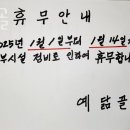 휴무안내
2025년 1월 1일부터 1월 14일
부시설 정비로 인하여 휴무합니
예 닮 골